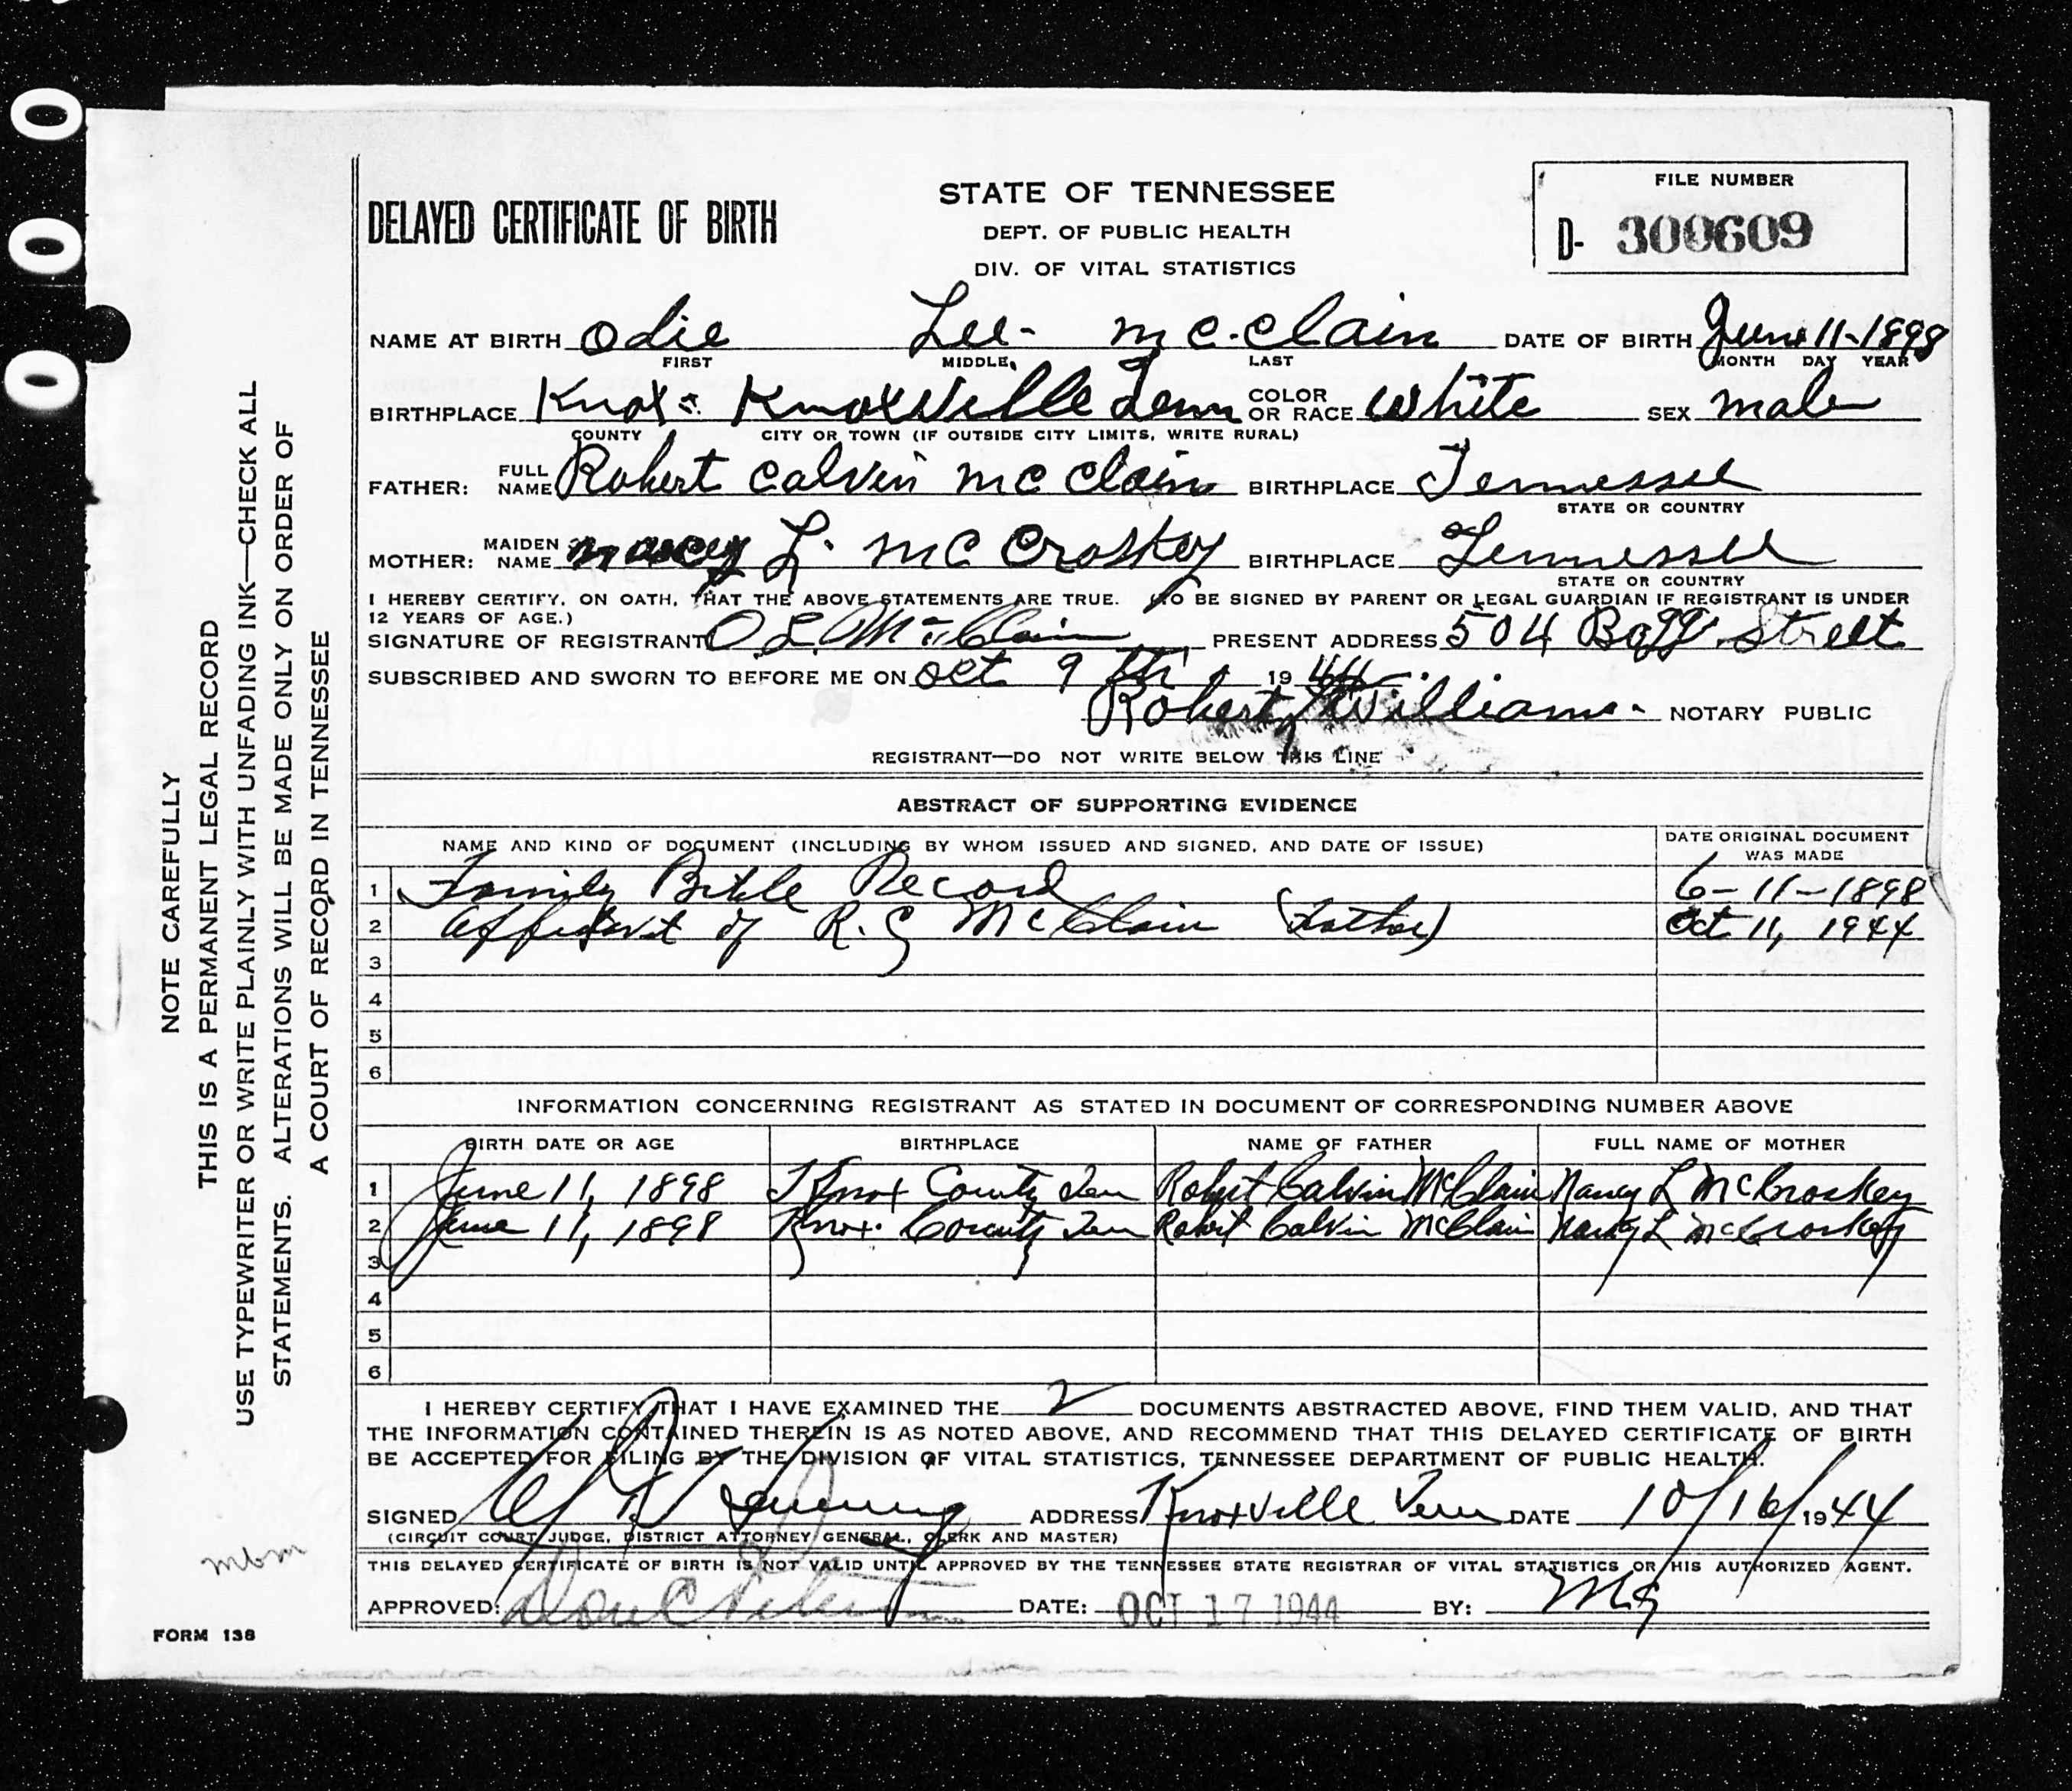 0 0 0
NOTE CAREFULLY
THIS IS A PERMANENT LEGAL RECORD
USE TYPEWRITER OR WRITE PLAINLY WITH UNFADING INK—CHECK ALL
STATEMENTS. ALTERATIONS WILL BE MADE ONLY ON ORDER OF
A COURT OF RECORD IN TENNESSEE
DELAYED CERTIFICATE OF BIRTH
STATE OF TENNESSEE
DEPT. OF PUBLIC HEALTH
DIV. OF VITAL STATISTICS
FILE NUMBER
D- 300609
NAME AT BIRTH Odie Lee- Mc.Clain DATE OF BIRTH June 11-1898
FIRST MIDDLE LAST MONTH DAY YEAR
BIRTHPLACE Knox: Knoxville Tenn COLOR OR RACE White SEX male
COUNTY CITY OR TOWN (IF OUTSIDE CITY LIMITS, WRITE RURAL)
FATHER: FULL NAME Robert Calvin McClain BIRTHPLACE Tennessee
STATE OR COUNTRY
MOTHER: MAIDEN NAME Nancy L. McCroskey BIRTHPLACE Tennessee
STATE OR COUNTRY
I HEREBY CERTIFY, ON OATH, THAT THE ABOVE STATEMENTS ARE TRUE. (TO BE SIGNED BY PARENT OR LEGAL GUARDIAN IF REGISTRANT IS UNDER
12 YEARS OF AGE.)
SIGNATURE OF REGISTRANT O. L. McClain PRESENT ADDRESS 504 Street
SUBSCRIBED AND SWORN TO BEFORE ME ON Oct 9th 1944
Robert Williams NOTARY PUBLIC
REGISTRANT—DO NOT WRITE BELOW THIS LINE
ABSTRACT OF SUPPORTING EVIDENCE
NAME AND KIND OF DOCUMENT (INCLUDING BY WHOM ISSUED AND SIGNED, AND DATE OF ISSUE) DATE ORIGINAL DOCUMENT WAS MADE
1 Family Bible Record 6-11-1898
2 Affidavit of R.C McClain (Father) Oct 11, 1944
3
4
5
6
INFORMATION CONCERNING REGISTRANT AS STATED IN DOCUMENT OF CORRESPONDING NUMBER ABOVE
BIRTH DATE OR AGE BIRTHPLACE NAME OF FATHER FULL NAME OF MOTHER
1 June 11, 1898 Knox County Ten Robert Calvin McClain Nancy L McCroskey
2 June 11, 1898 Knox County Ten Robert Calvin McClain Nancy L McCroskey
3
4
5
6
I HEREBY CERTIFY THAT I HAVE EXAMINED THE 2 DOCUMENTS ABSTRACTED ABOVE, FIND THEM VALID, AND THAT
THE INFORMATION CONTAINED THEREIN IS AS NOTED ABOVE, AND RECOMMEND THAT THIS DELAYED CERTIFICATE OF BIRTH
BE ACCEPTED FOR FILING BY THE DIVISION OF VITAL STATISTICS, TENNESSEE DEPARTMENT OF PUBLIC HEALTH.
SIGNED ADDRESS Knoxville Tenn DATE 10/16/1944
(CIRCUIT COURT JUDGE, DISTRICT ATTORNEY GENERAL, CLERK AND MASTER)
mbm
THIS DELAYED CERTIFICATE OF BIRTH IS NOT VALID UNTIL APPROVED BY THE TENNESSEE STATE REGISTRAR OF VITAL STATISTICS OR HIS AUTHORIZED AGENT.
APPROVED: DATE: OCT 17 1944 BY:
FORM 138